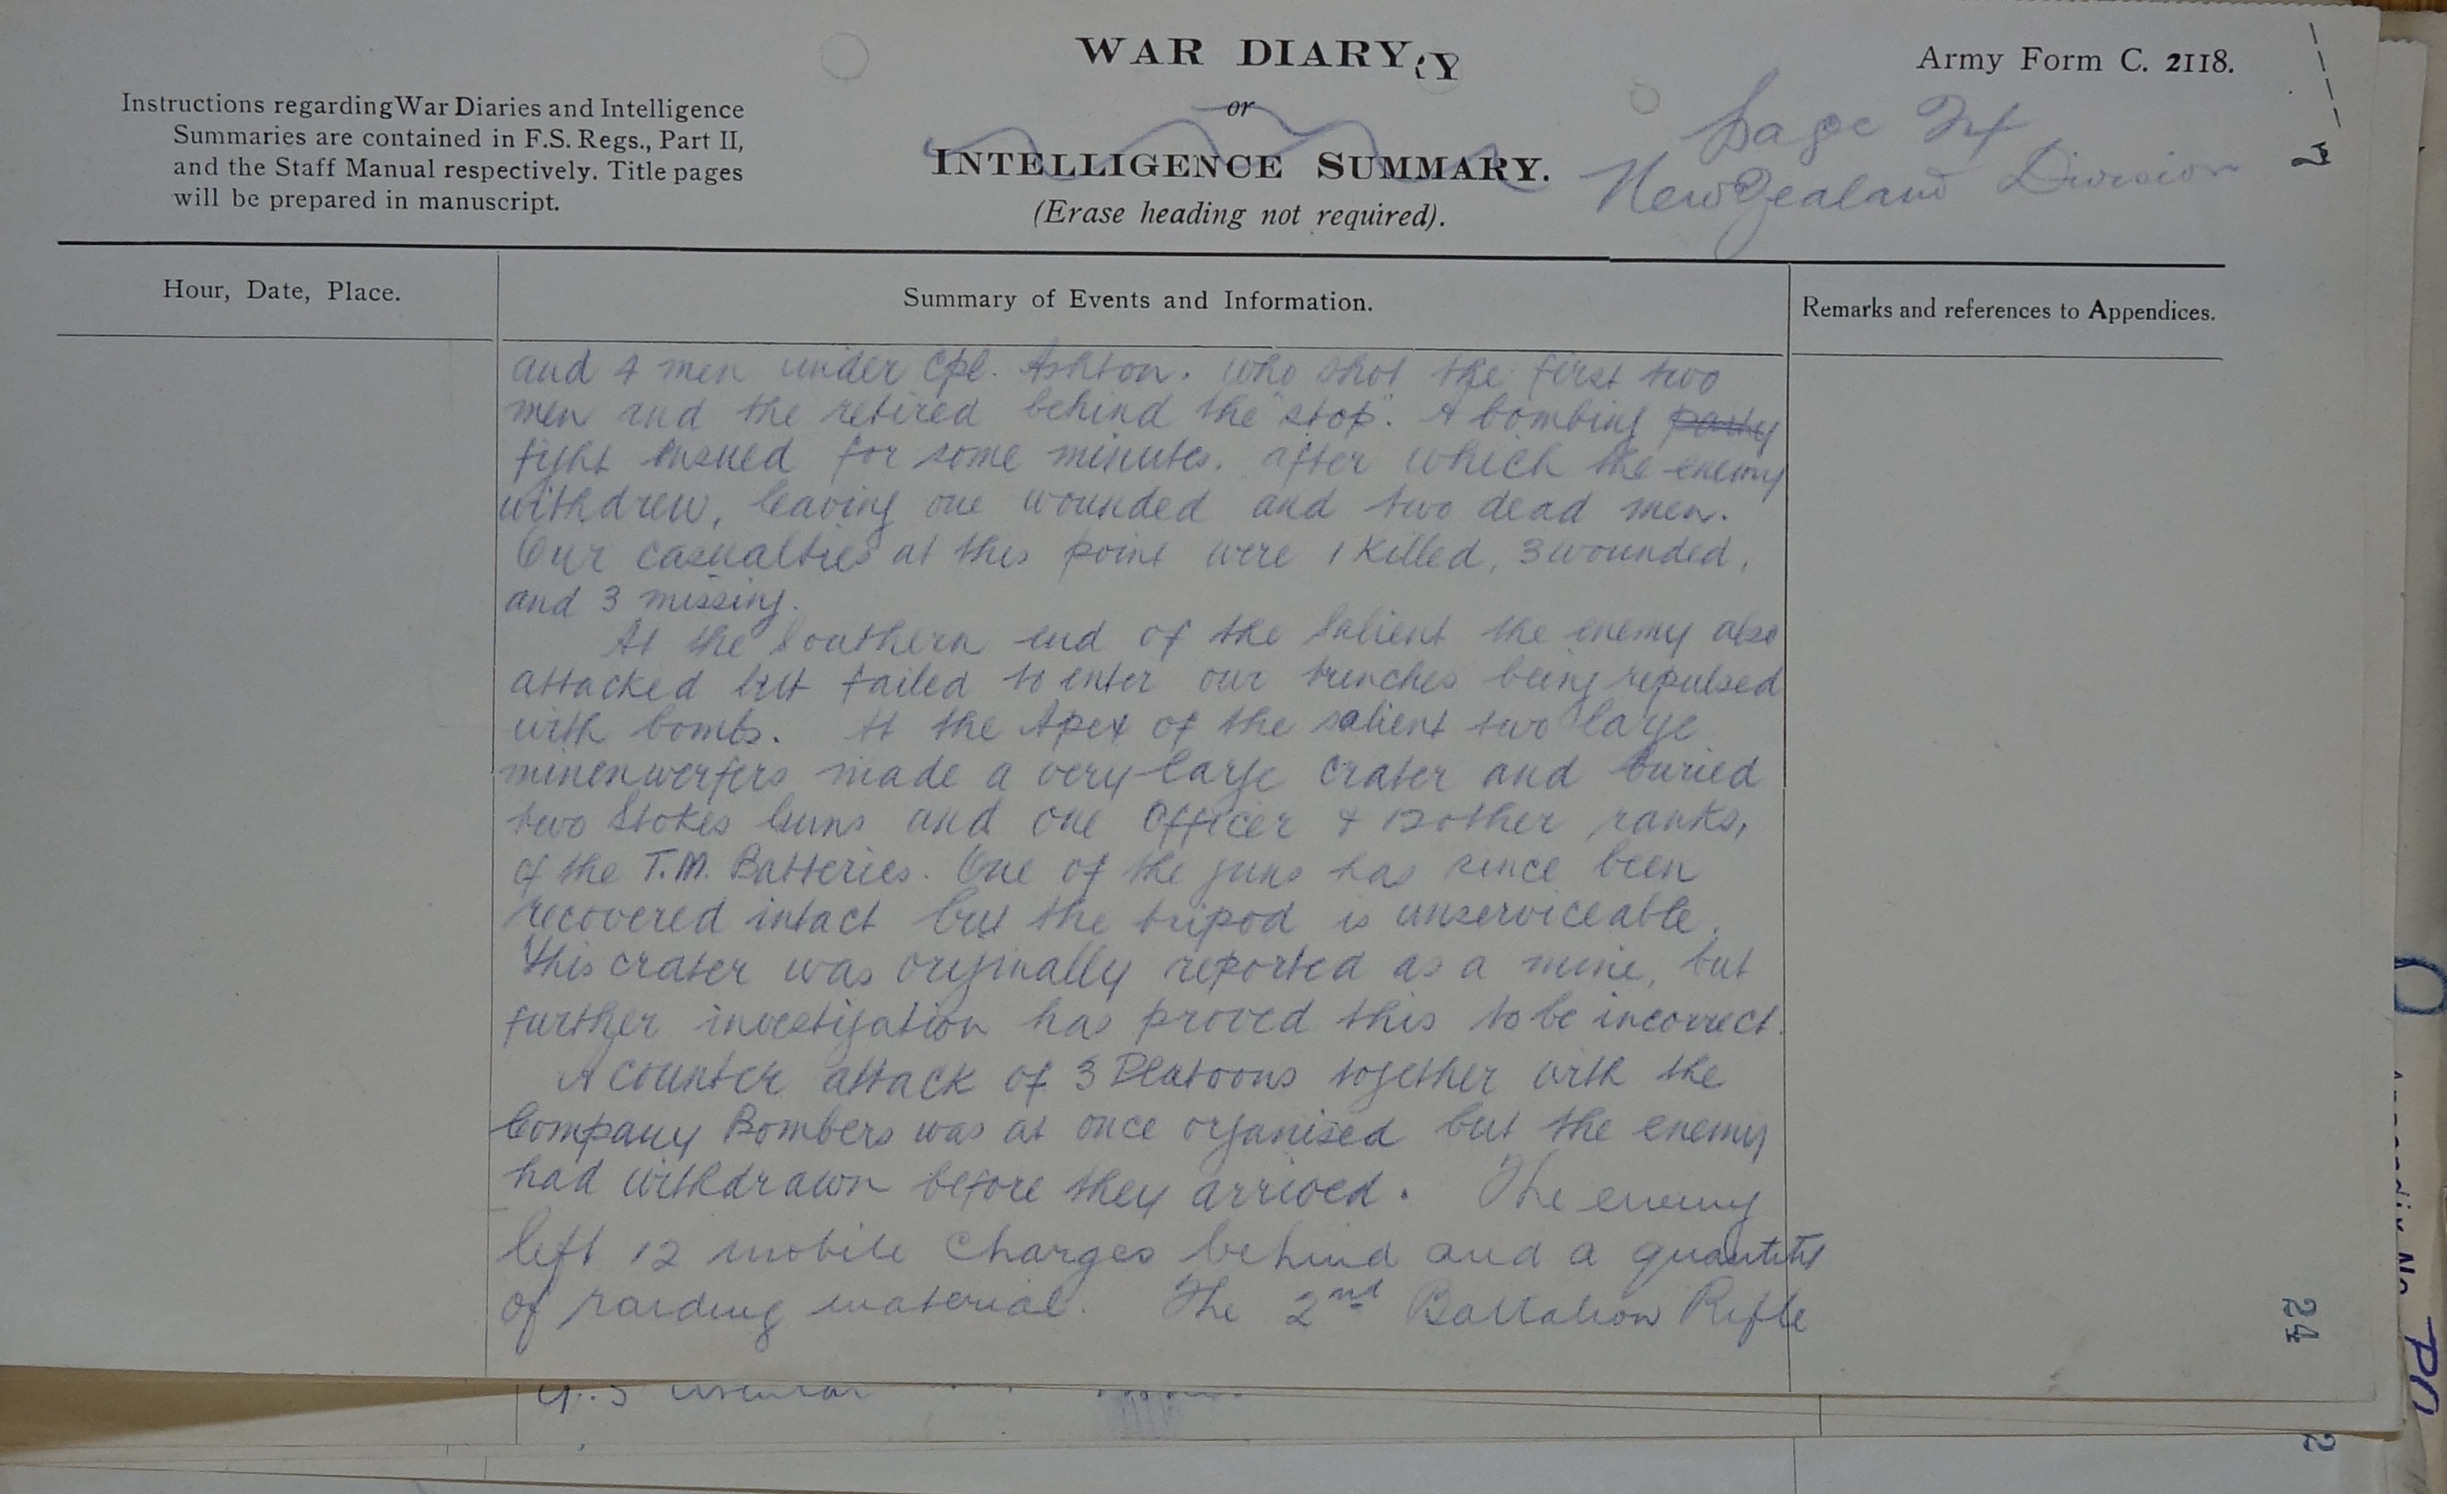 WAR DIARY
Army Form C. 2118.
or
INTELLIGENCE SUMMARY.
(Erase heading not required).
Instructions regarding War Diaries and Intelligence
Summaries are contained in F.S. Regs., Part II,
and the Staff Manual respectively. Title pages
will be prepared in manuscript.
page
New Zealand Division
Hour, Date, Place.
Summary of Events and Information.
Remarks and references to Appendices.
and 4 men under Cpl. Ashton. who shot the first two
men and the retired behind the "stop". A bombing party
fight ensued for some minutes. after which the enemy
withdrew, leaving one wounded and two dead men.
Our casualties at this point were 1 killed, 3 wounded,
and 3 missing.
At the Southern end of the Salient the enemy also
attacked but failed to enter our trenches being repulsed
with bombs. At the Apex of the salient two large
minenwerfers made a very large crater and buried
two Stokes Guns and one Officer & 12 other ranks,
of the T.M. Batteries. One of the guns has since been
recovered intact but the tripod is unserviceable.
This crater was originally reported as a mine, but
further investigation has proved this to be incorrect.
A counter attack of 3 Platoons together with the
Company Bombers was at once organised but the enemy
had withdrawn before they arrived. The enemy
left 12 mobile charges behind and a quantity
of raiding material. The 2nd Battalion Rifle
24